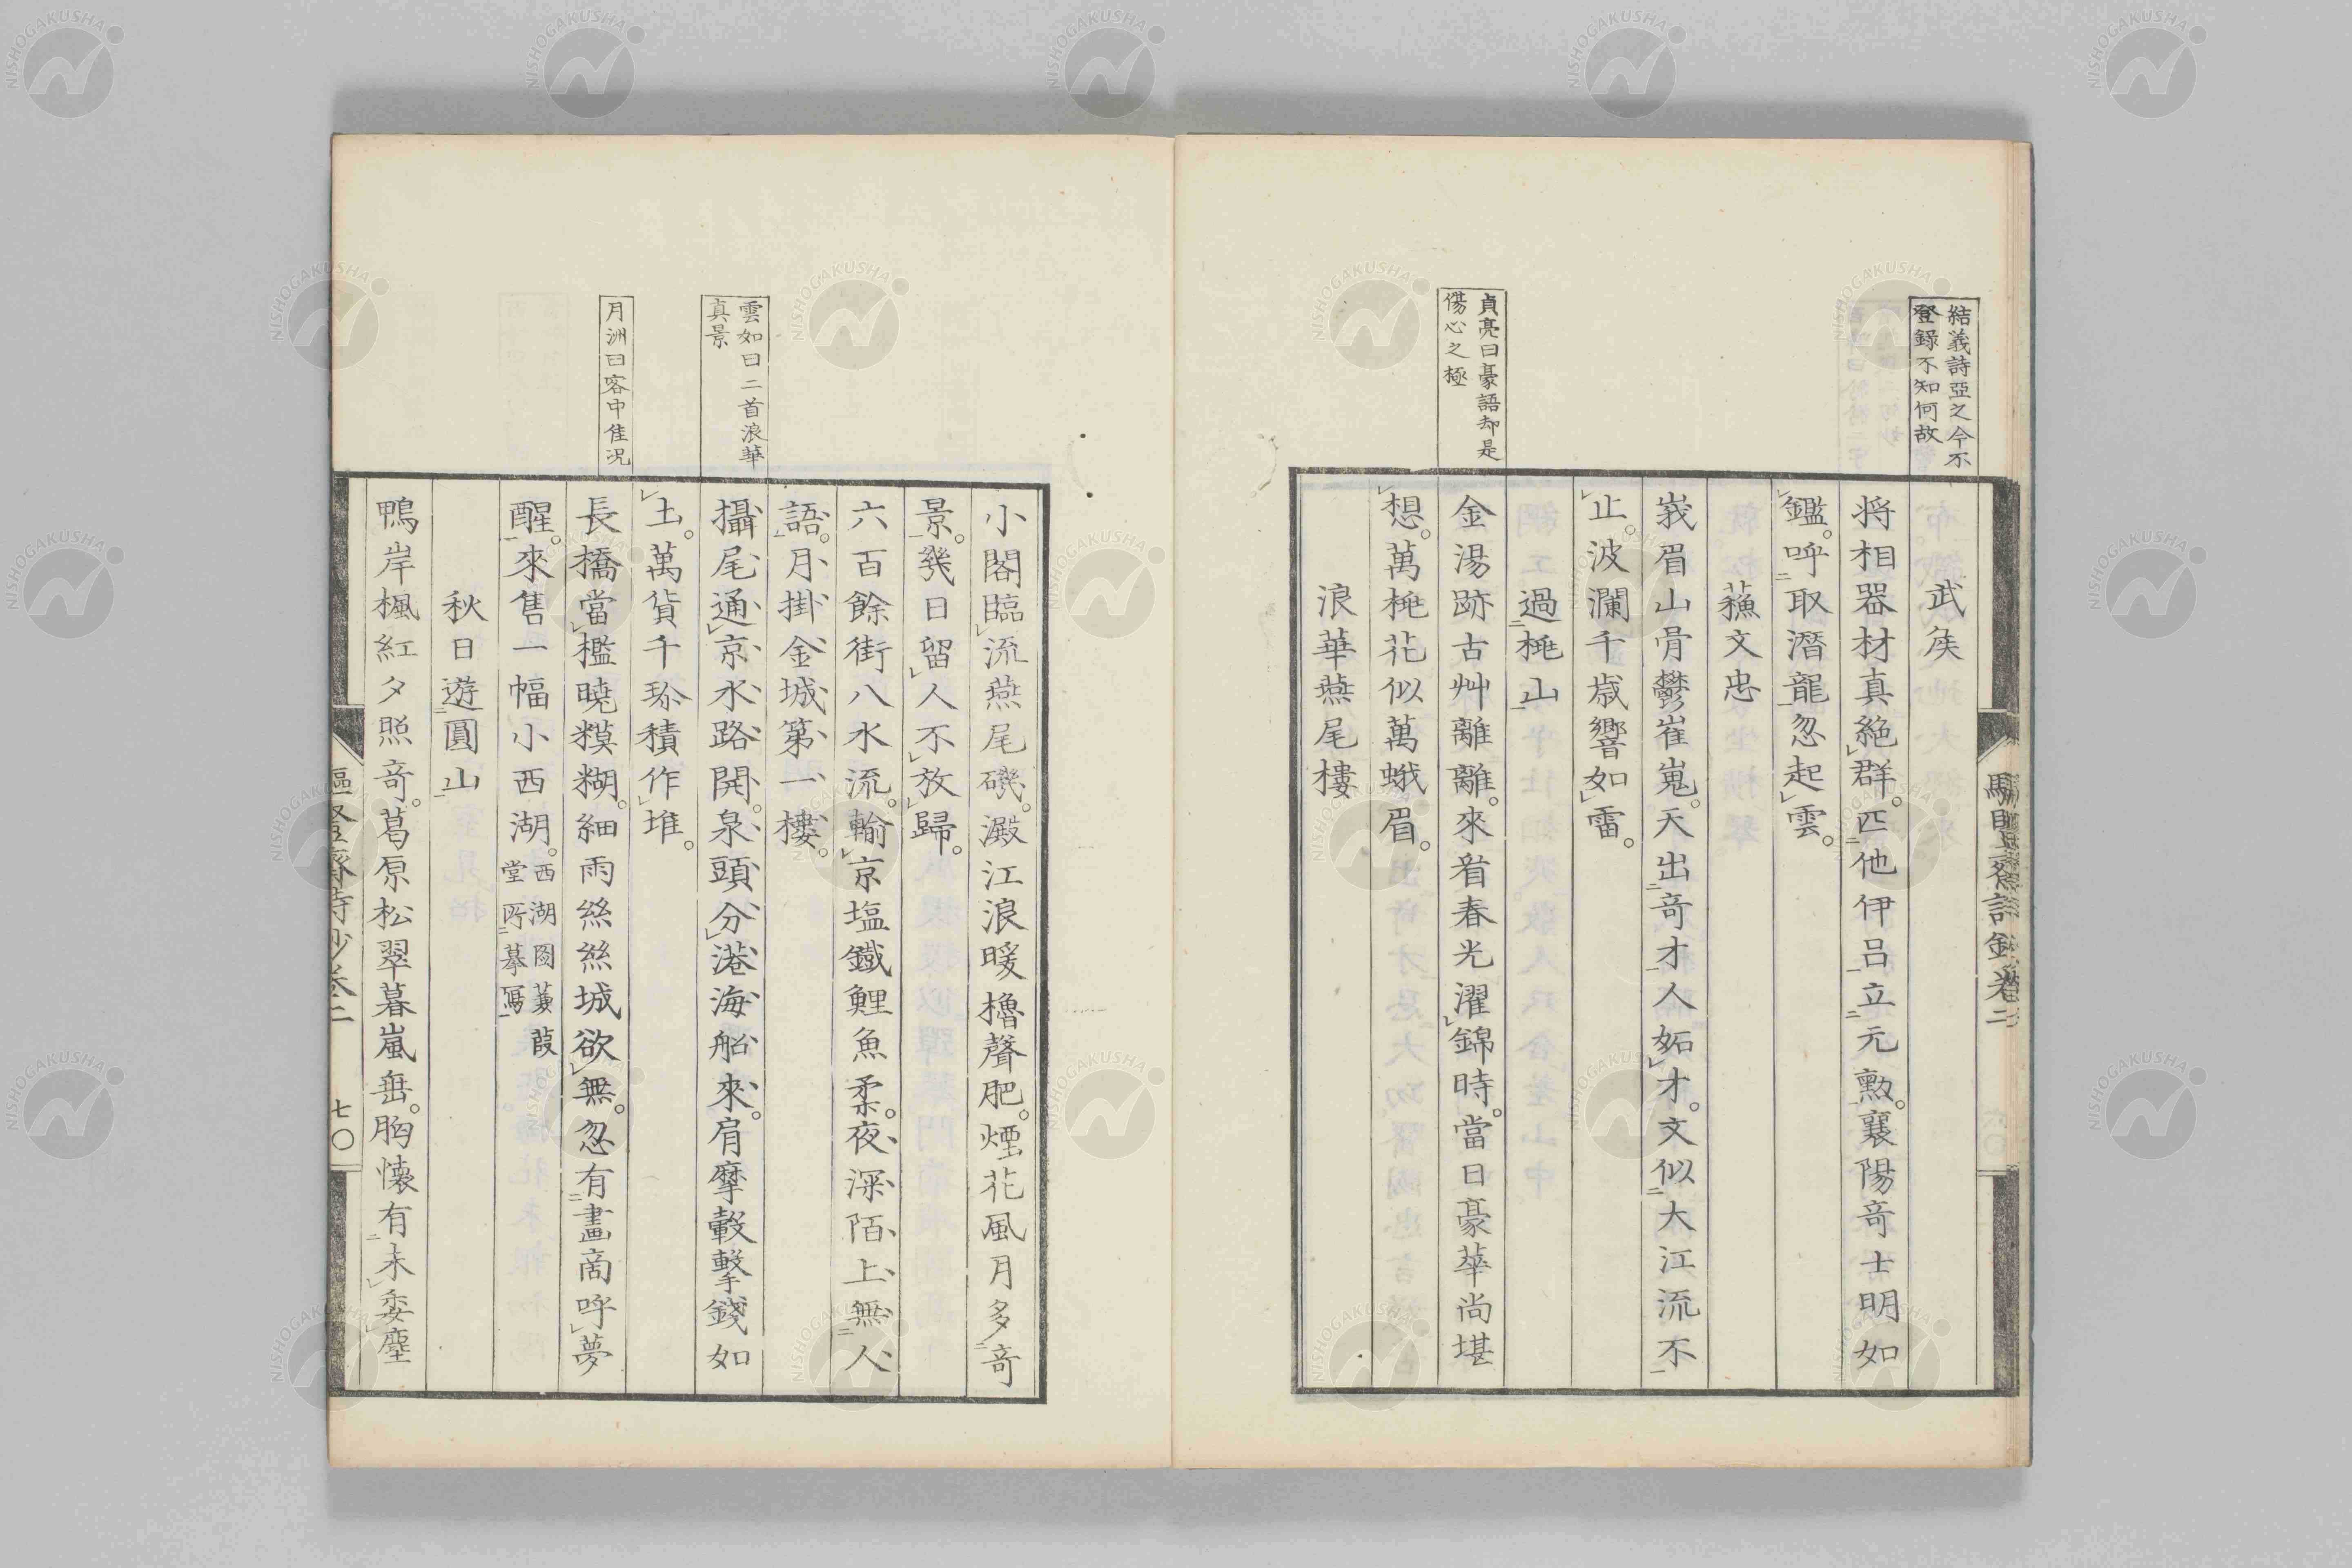 結義詩亞之今不
登録不知何故
武矦
将相器材真絶群。匹他伊呂立元勲。襄陽竒士明如
鑑。呼取潛龍忽起雲。
蘓文忠
峩眉山骨鬱崔嵬。天出竒才人妬才。文似大江流不
止。波瀾千歳響如雷。
過桃山
貞亮曰豪語却是
傷心之極
金湯跡古艸離離。來看春光濯錦時。當日豪華尚堪
想。萬桃花似萬蛾眉。
浪華燕尾樓
小閣臨流燕尾磯。澱江浪暖櫓聲肥。煙花風月多竒
景。幾日留人不放歸。
六百餘街八水流。輸京塩鐵鯉魚柔。夜深陌上無人
語。月掛金城第一樓。
雲如曰二首浪華
真景
攝尾通京水路開。泉頭分港海船來。肩摩轂擊錢如
土。萬貨千珍積作堆。
月洲曰客中佳况
長橋當檻曉糢糊。細雨絲絲城欲無。忽有畫商呼夢
醒。來售一幅小西湖。西湖圖蒹葭
堂所摹寫
秋日遊圓山
鴨岸楓紅夕照竒。葛原松翠暮嵐垂。胸懐有未委塵
七〇